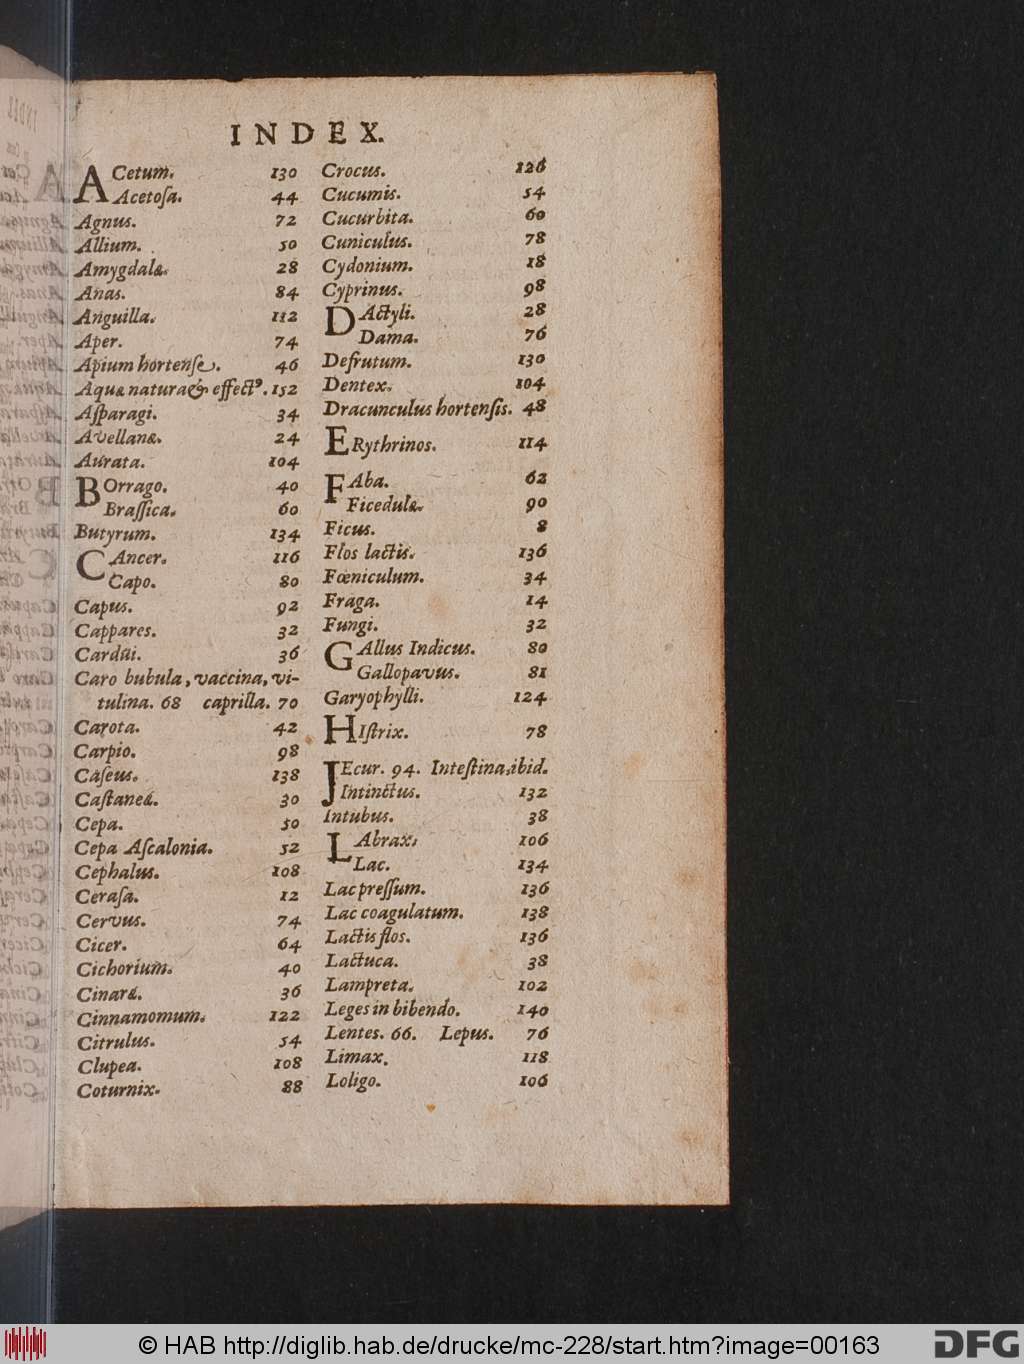 INDEX.
ACetum. 130
Acetoſa. 44
Agnus. 72
Allium. 50
Amygdalæ. 28
Anas. 84
Anguilla. 112
Aper. 74
Apium hortenſe. 46
Aquæ natura & effectꝰ. 152
Aſparagi. 34
Avellanæ. 24
Aurata. 104
BOrrago. 40
Braſſica. 60
Butyrum. 134
CAncer. 116
Capo. 80
Capus. 92
Cappares. 32
Cardui. 36
Caro bubula, vaccina, vi-
tulina. 68 caprilla. 70
Carota. 42
Carpio. 98
Caſeus. 138
Caſtaneæ. 30
Cepa. 50
Cepa Aſcalonia. 52
Cephalus. 108
Ceraſa. 12
Cervus. 74
Cicer. 64
Cichorium. 40
Cinaræ. 36
Cinnamomum. 122
Citrulus. 54
Clupea. 108
Coturnix. 88
Crocus. 126
Cucumis. 54
Cucurbita. 60
Cuniculus. 78
Cydonium. 18
Cyprinus. 98
DActyli. 28
Dama. 76
Defrutum. 130
Dentex. 104
Dracunculus hortenſis. 48
ERythrinos. 114
FAba. 62
Ficedulæ. 90
Ficus. 8
Flos lactis. 136
Fœniculum. 34
Fraga. 14
Fungi. 32
GAllus Indicus. 80
Gallopavus. 81
Garyophylli. 124
HIſtrix. 78
JEcur. 94. Inteſtina, ibid.
Intinctus. 132
Intubus. 38
LAbrax, 106
Lac. 134
Lac preſſum. 136
Lac coagulatum. 138
Lactis flos. 136
Lactuca. 38
Lampreta. 102
Leges in bibendo. 140
Lentes. 66. Lepus. 76
Limax, 118
Loligo. 106
© HAB http://diglib.hab.de/drucke/mc-228/start.htm?image=00163
DFG